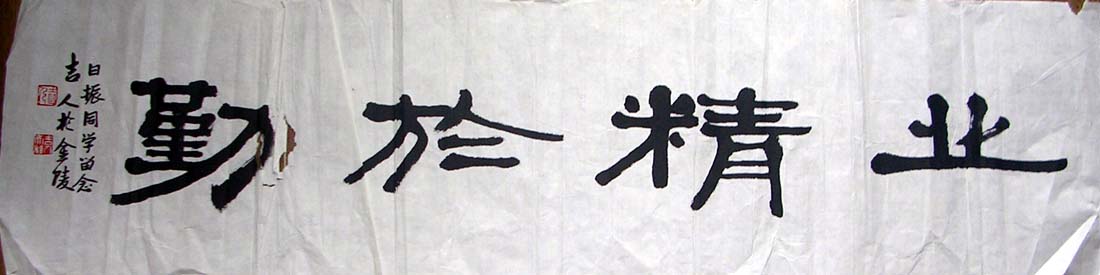 业精於勤
日振同学留念
吉人於金陵